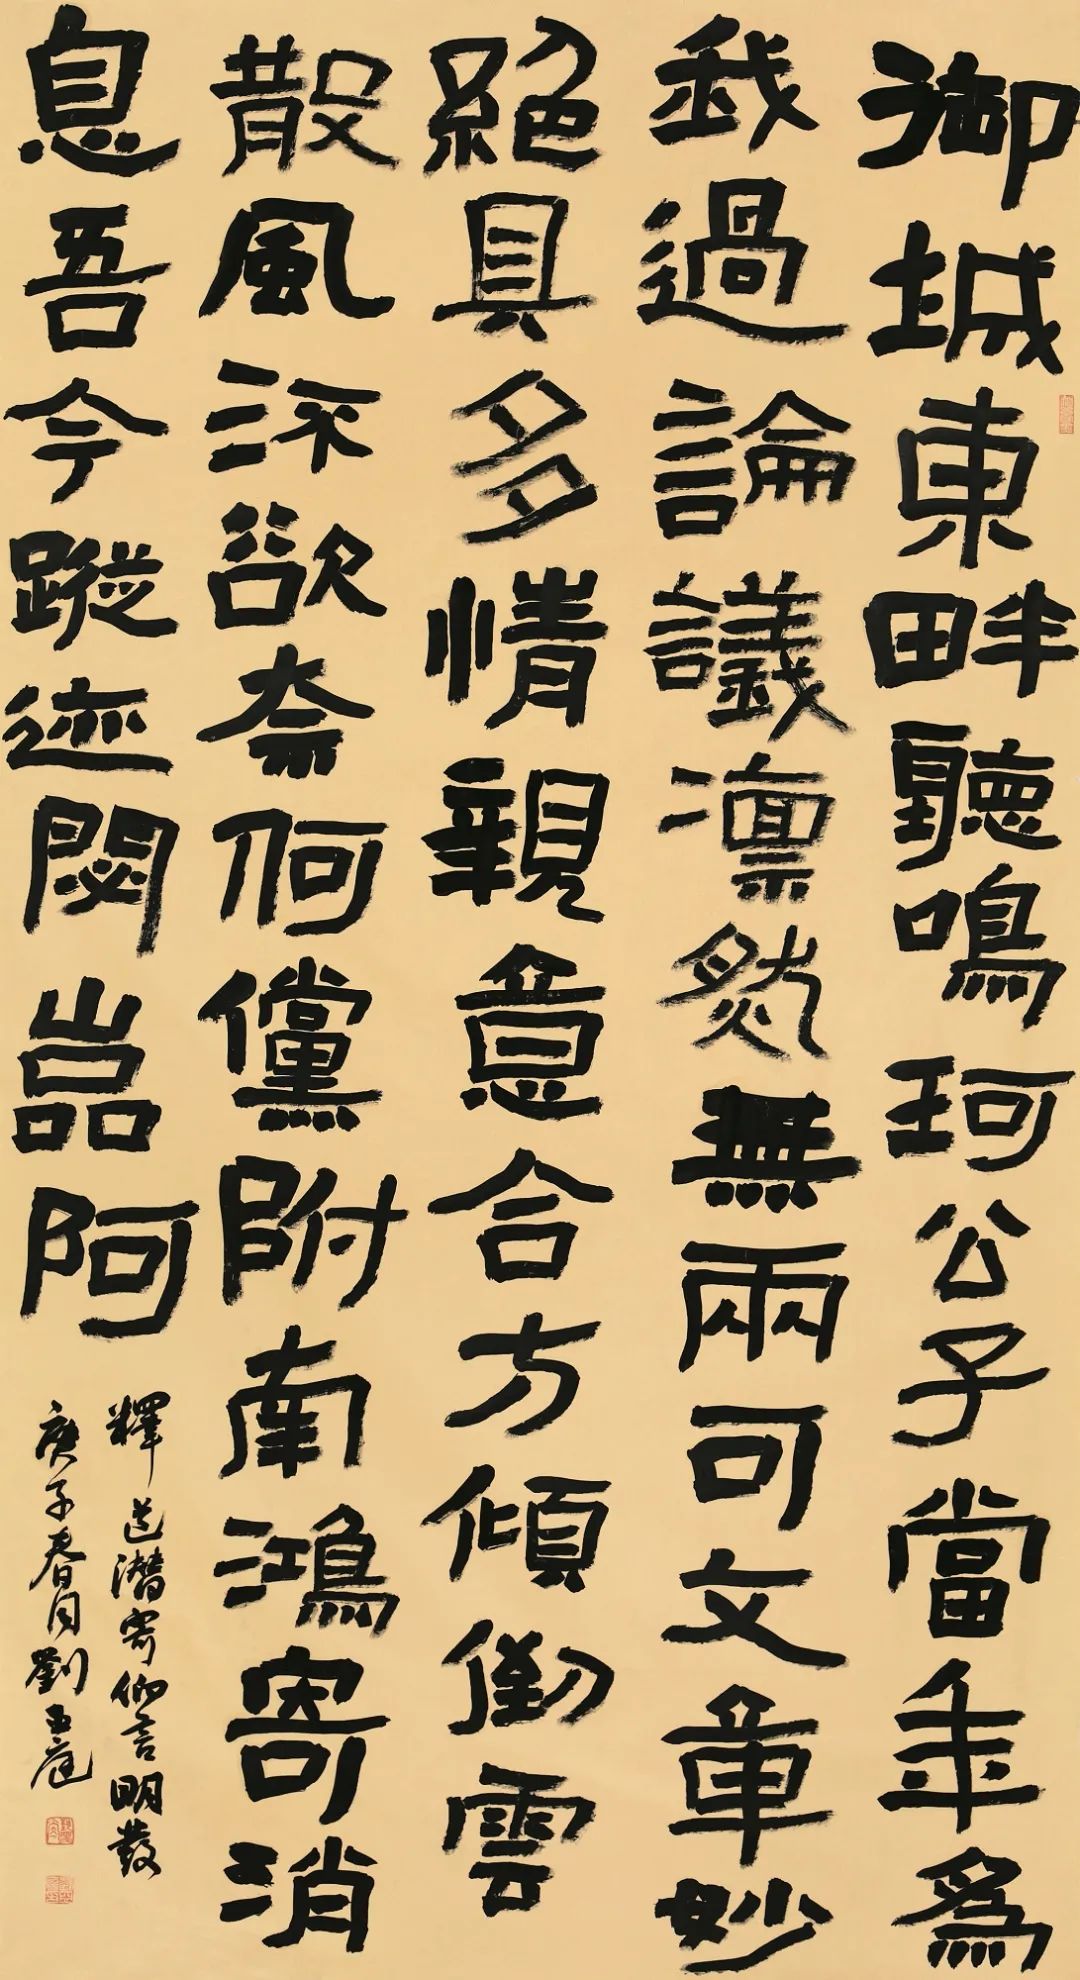 御城東畔聽鳴珂公子當年為
我過論議凛然無兩可文章妙
絕具多情親意合方傾倒雲
散風流欲奈何儻附南鴻寄消
息吾今蹤迹閟岩阿
釋道潛寄仙言明發
庚子春月劉